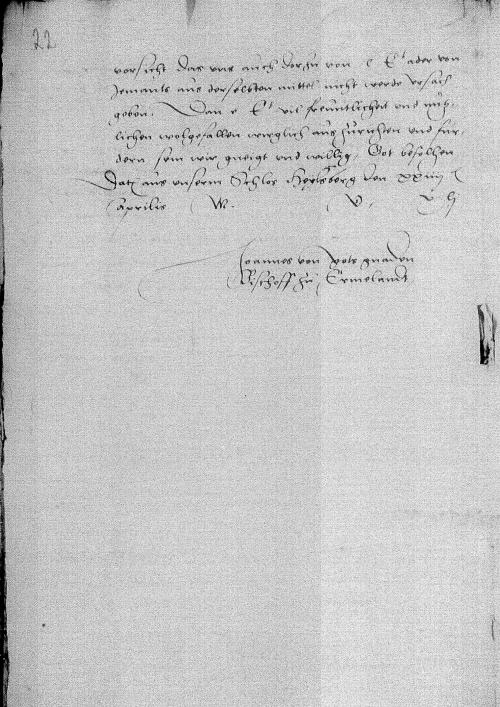 22
vorsicht das uns auch dorzu von e E^t ader von
Jemants aus derselbten mittel nicht werde ursach
geben. Dan e E^t vil freuntlicheit und nutz-
lichen wolgefallen wirglich aus zurichten und fur-
dern sein wir gneigt und willig. Got befolhen
Dat aus unserm Schlos Heylsberg den xxiiii
Aprilis M. D.
Joannes von gots gnaden
Bischoff zu Ermelandt